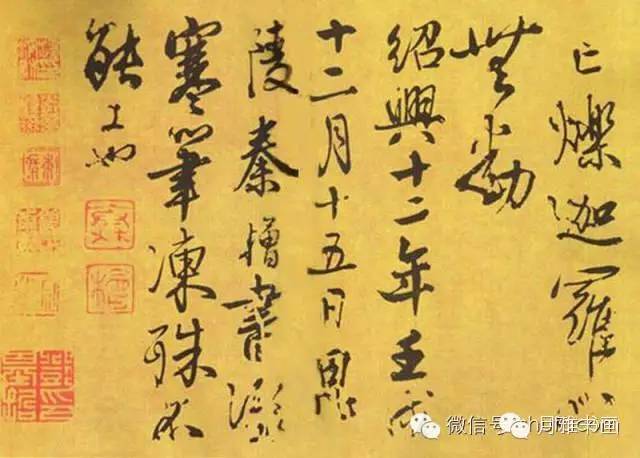 亡爍迦羅心
無動
紹興十二年壬戌
十二月十五日
陵秦檜書
寒筆凍殊不
能工也
微信号
月雅书画